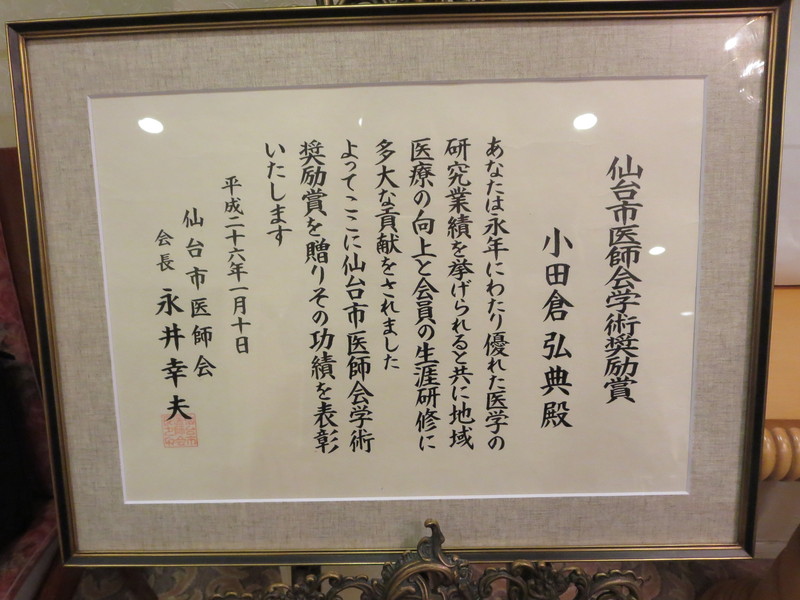 仙台市医師会学術奨励賞
小田倉弘典殿
あなたは永年にわたり優れた医学の
研究業績を挙げられると共に地域
医療の向上と会員の生涯研修に
多大な貢献をされました
よってここに仙台市医師会学術
奨励賞を贈りその功績を表彰
いたします
平成二十六年一月十日
仙台市医師会
会長 永井幸夫